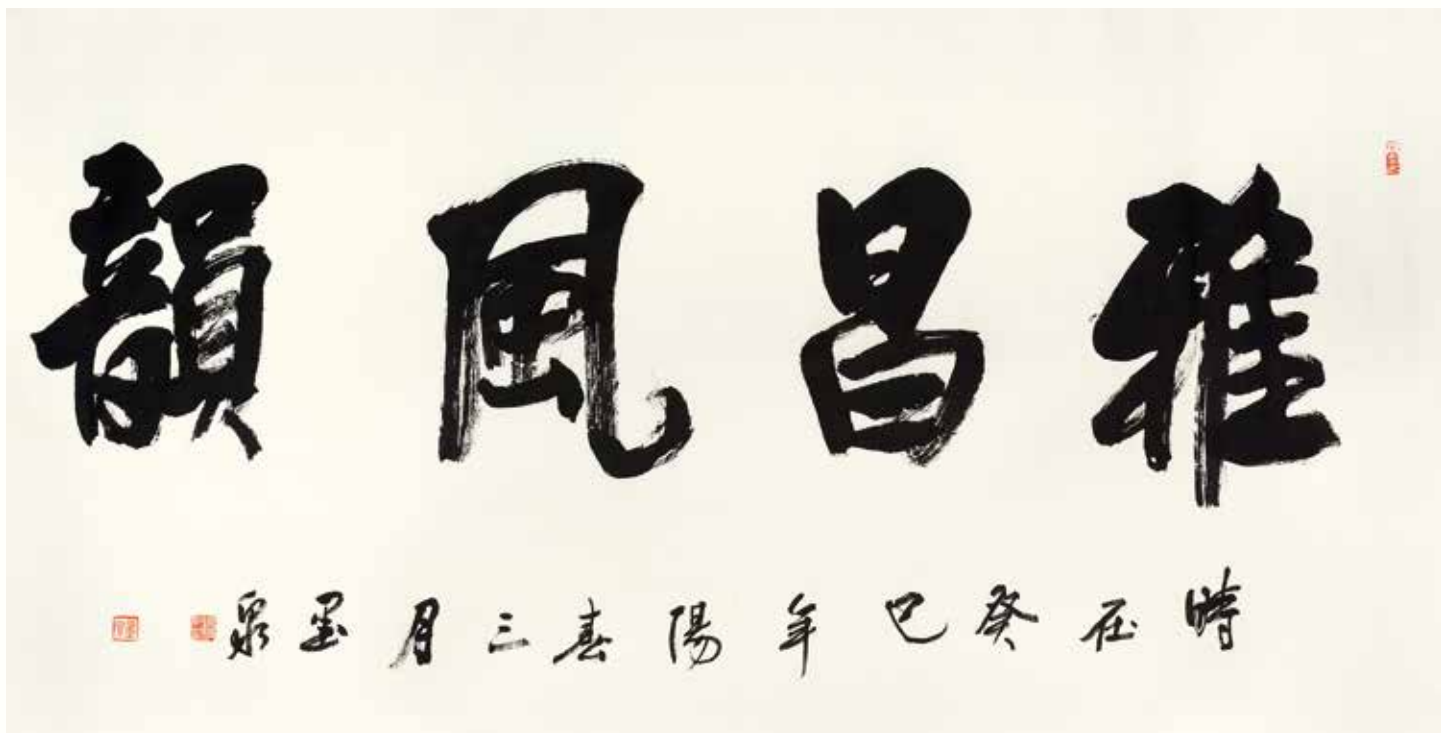 雅昌風韻
時在癸巳年陽春三月墨泉